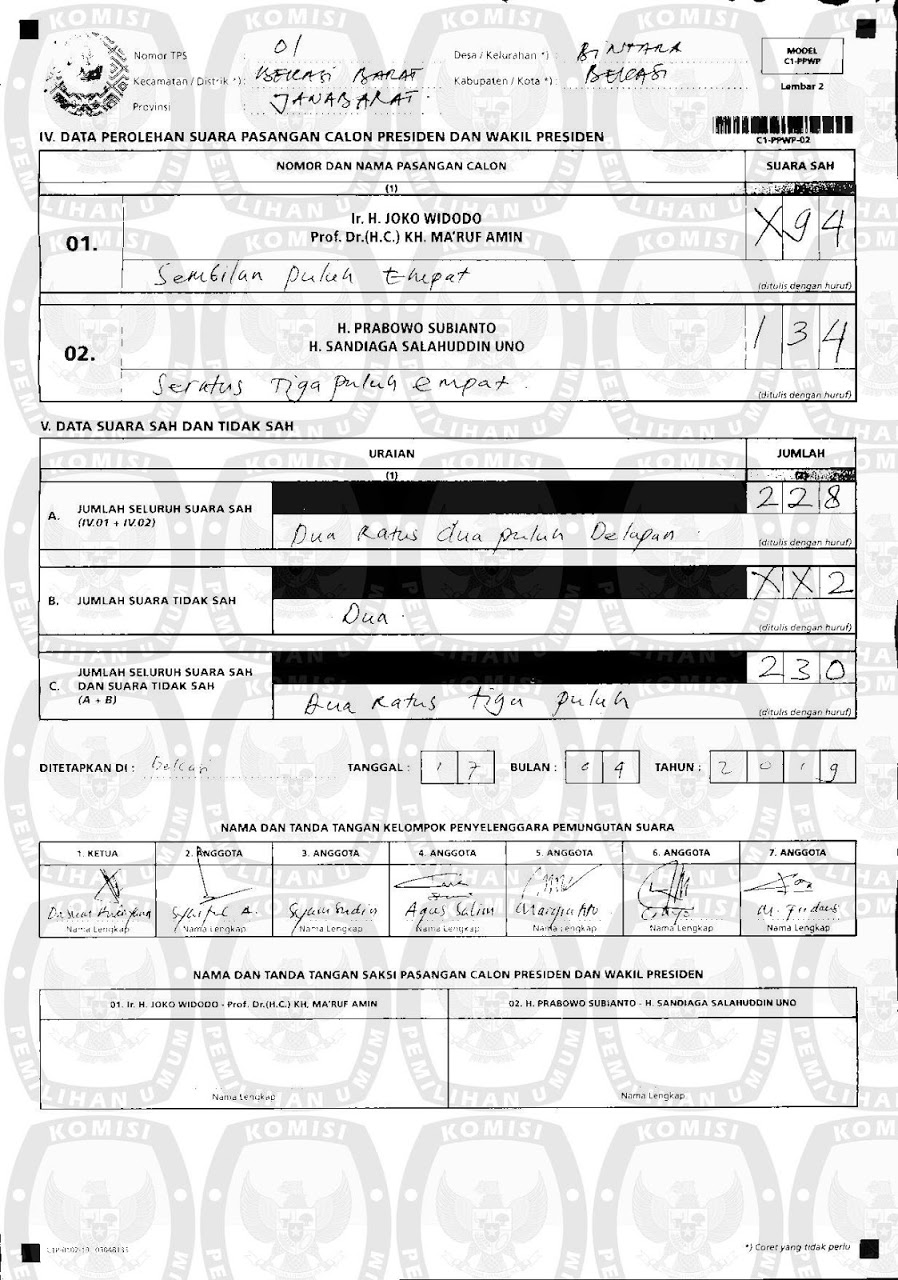 Nomor TPS : 01
Desa / Kelurahan *) : BINTARA
MODEL
C1-PPWP
Kecamatan / Distrik *) : BEKASI BARAT
Kabupaten / Kota *) : BEKASI
Lembar 2
Provinsi : JAWABARAT
C1-PPWP-02
IV. DATA PEROLEHAN SUARA PASANGAN CALON PRESIDEN DAN WAKIL PRESIDEN
NOMOR DAN NAMA PASANGAN CALON SUARA SAH
(1)
01. Ir. H. JOKO WIDODO
Prof. Dr.(H.C.) KH. MA'RUF AMIN
X94
Sembilan puluh Empat
(ditulis dengan huruf)
02. H. PRABOWO SUBIANTO
H. SANDIAGA SALAHUDDIN UNO
134
Seratus Tiga puluh empat.
(ditulis dengan huruf)
V. DATA SUARA SAH DAN TIDAK SAH
URAIAN JUMLAH
(1) (2)
A. JUMLAH SELURUH SUARA SAH
(IV.01 + IV.02)
228
Dua Ratus dua puluh Delapan
(ditulis dengan huruf)
B. JUMLAH SUARA TIDAK SAH
XX2
Dua.
(ditulis dengan huruf)
C. JUMLAH SELURUH SUARA SAH
DAN SUARA TIDAK SAH
(A + B)
230
Dua Ratus tiga puluh
(ditulis dengan huruf)
DITETAPKAN DI : Bekasi TANGGAL : 17 BULAN : 04 TAHUN : 2019
NAMA DAN TANDA TANGAN KELOMPOK PENYELENGGARA PEMUNGUTAN SUARA
1. KETUA 2. ANGGOTA 3. ANGGOTA 4. ANGGOTA 5. ANGGOTA 6. ANGGOTA 7. ANGGOTA
Syaiful A. Syamsudin Agus Salim M. Firdaus
Nama Lengkap Nama Lengkap Nama Lengkap Nama Lengkap Nama Lengkap Nama Lengkap Nama Lengkap
NAMA DAN TANDA TANGAN SAKSI PASANGAN CALON PRESIDEN DAN WAKIL PRESIDEN
01. Ir. H. JOKO WIDODO - Prof. Dr.(H.C.) KH. MA'RUF AMIN
02. H. PRABOWO SUBIANTO - H. SANDIAGA SALAHUDDIN UNO
Nama Lengkap Nama Lengkap
*) Coret yang tidak perlu